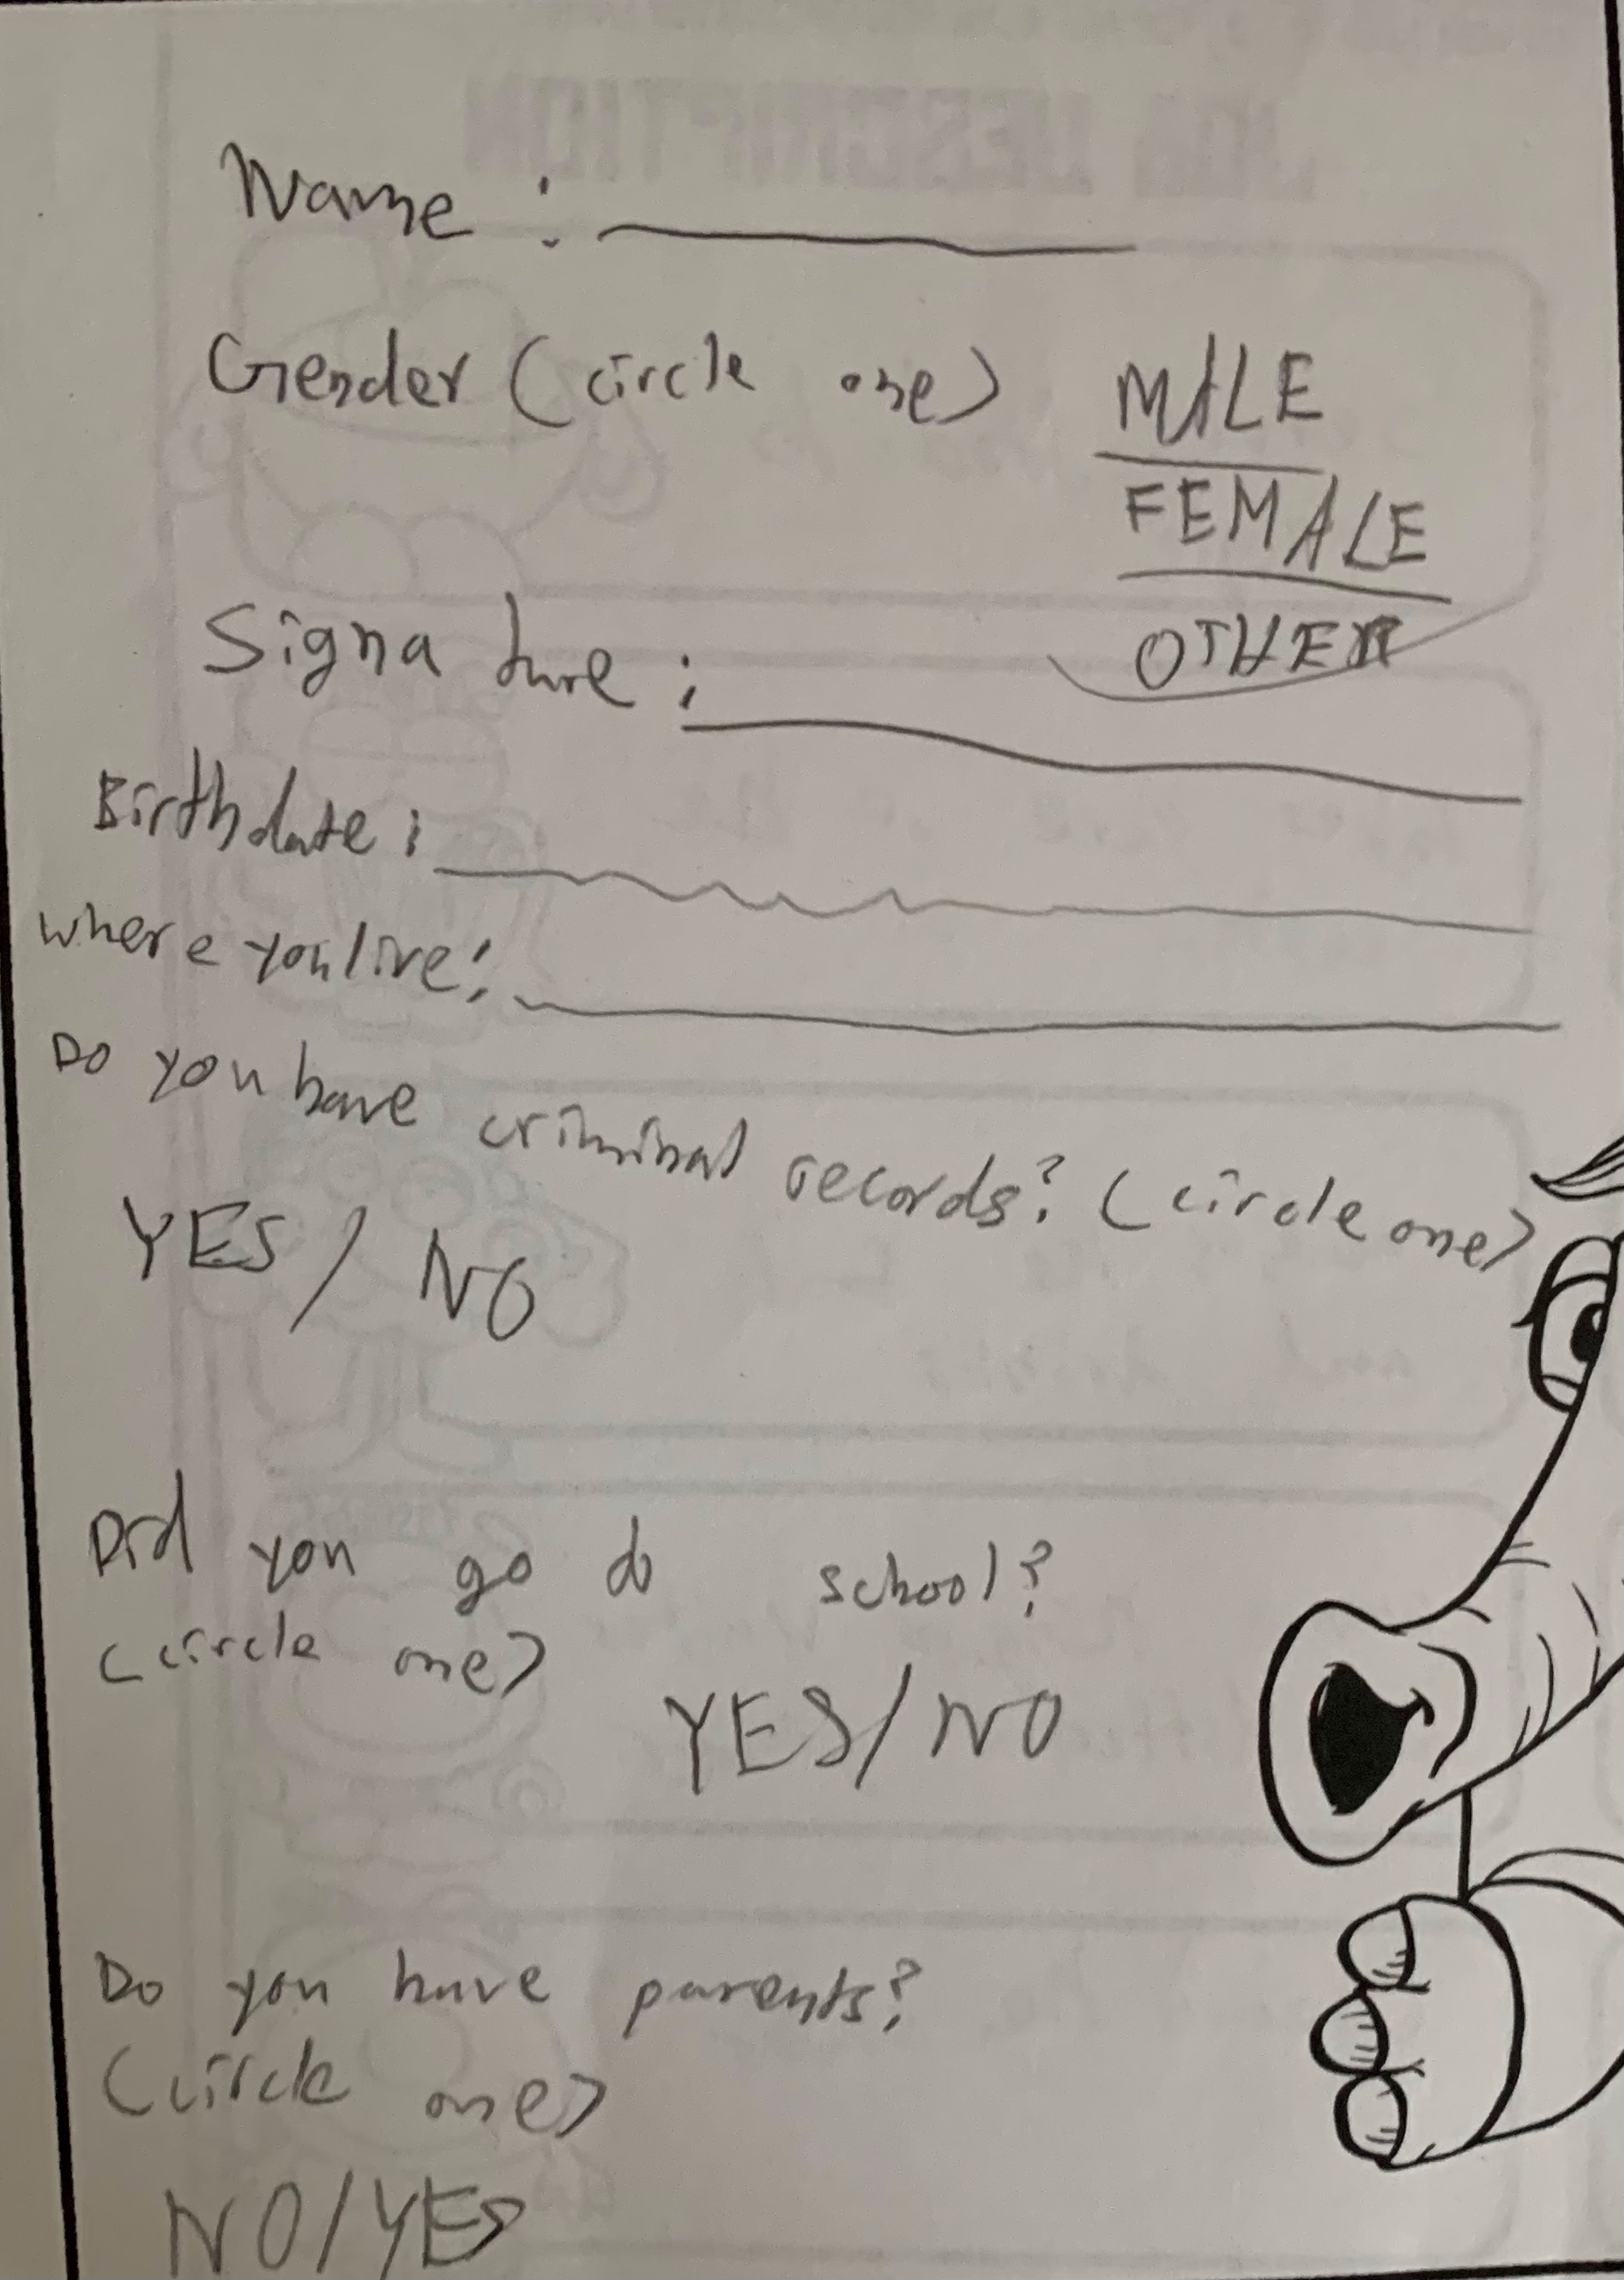 Name :
Gender (circle one) MALE
FEMALE
OTHER
Signature :
Birthdate :
where you live :
Do you have criminal records? (circle one)
YES / NO
Did you go to school?
(circle one)
YES/NO
Do you have parents?
(circle one)
NO/YES
JOB DESCRIPTION